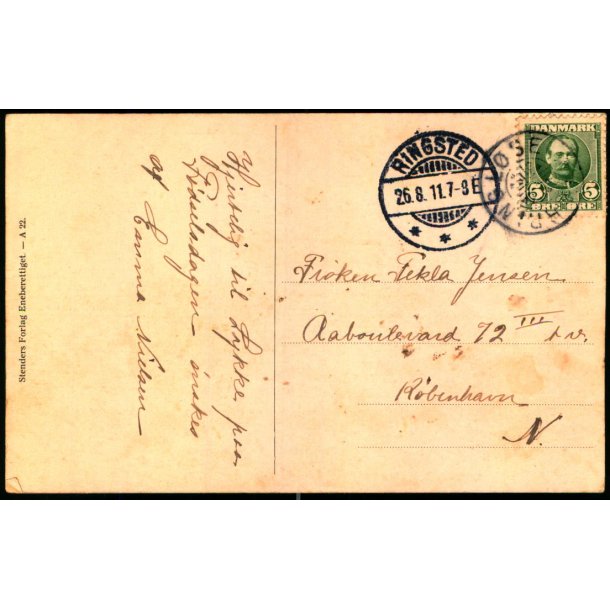 Stenders Forlag Eneberettiget. — A 22.
Hjertelig til Lykke paa
Fødselsdagen ønskes
af Emma Nielsen
RINGSTED
26.8.11.7-9E
DANMARK
5 5
ØRE ØRE
Frøken Tekla Jensen
Aaboulevard 72 III t.v.
København
N.